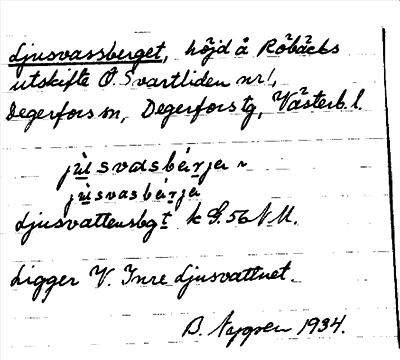 Ljusvassberget, höjd å Röbäcks
utskifte Ö. Svartliden nr 1,
Degerfors sn, Degerfors tg, Västerb. l.
jùsvasbærje
Ljusvattensbgt k G. 56 N M.
Ligger V. Inre Ljusvattnet.
B. Nygren 1934.